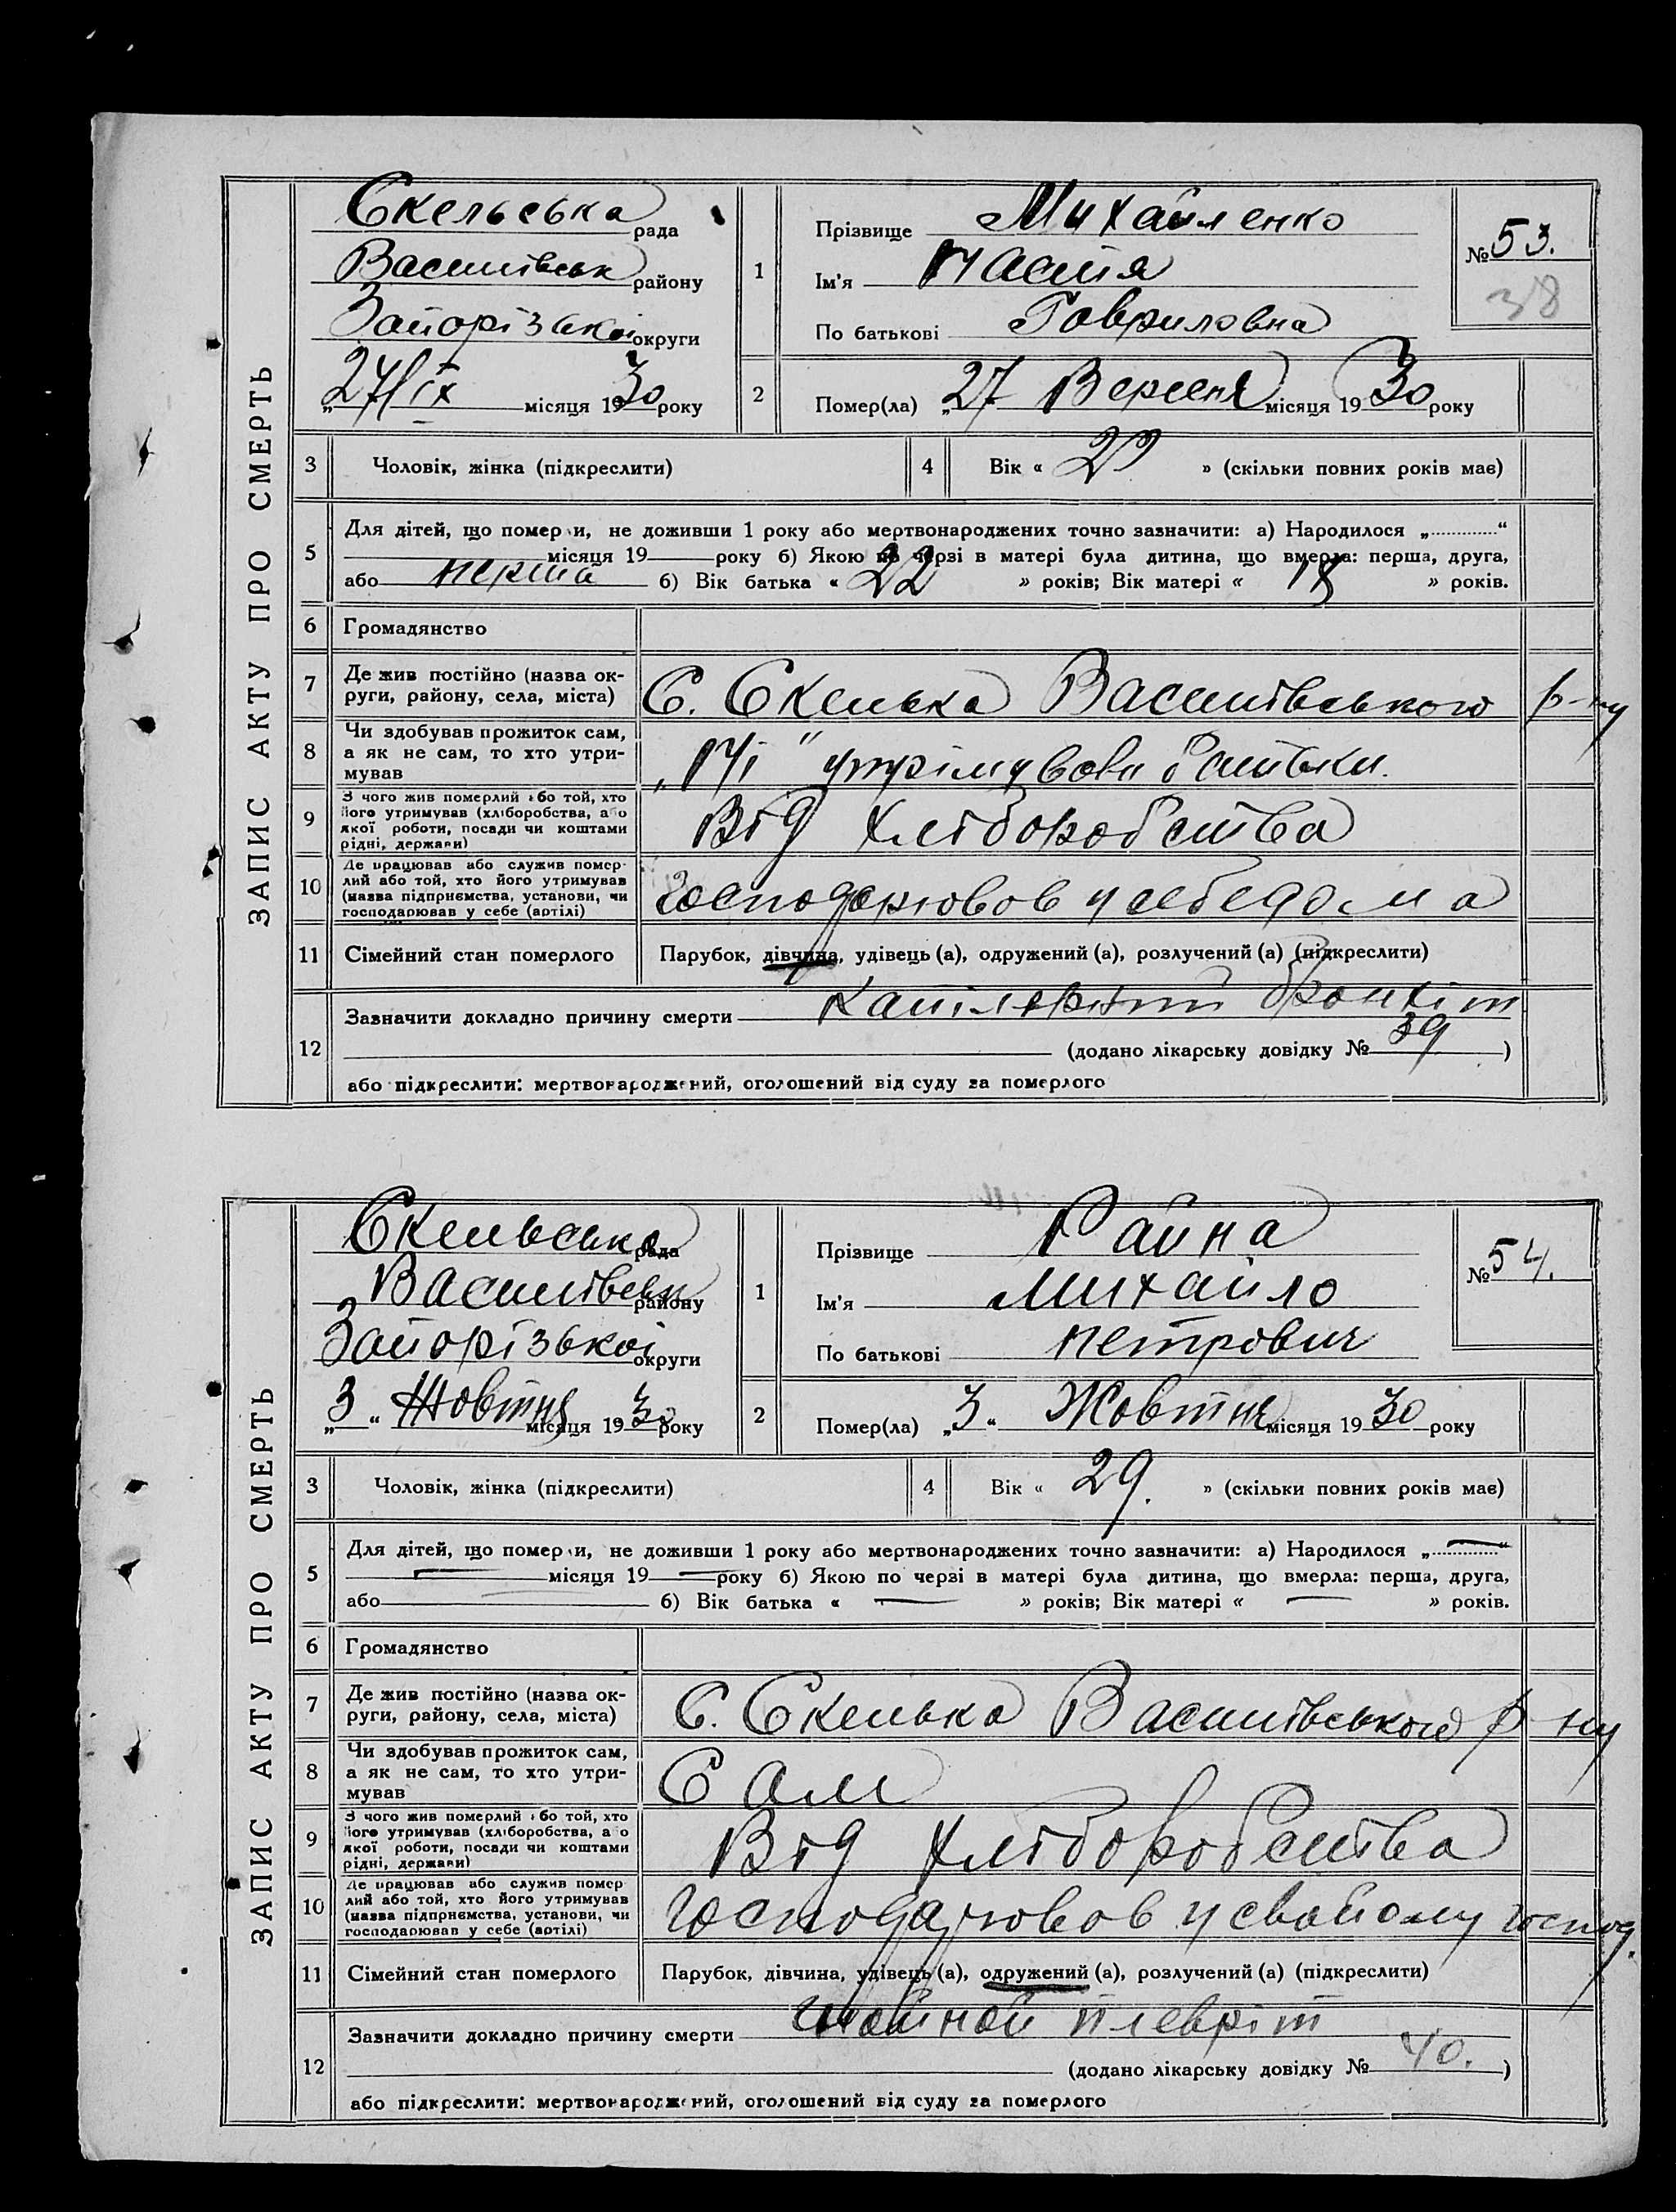 ЗАПИС АКТУ ПРО СМЕРТЬ
Скельська рада
Василівськ району
Запорізькой округи
„27/ІХ місяця 1930 року
1
Прізвище Михайленко
Ім'я Настя
По батькові Гавриловна
№ 53.
38
2
Помер(ла) „27 Вересня місяця 1930 року
3 Чоловік, жінка (підкреслити)
4 Вік « » (скільки повних років має)
5
Для дітей, що померли, не доживши 1 року або мертвонароджених точно зазначити: а) Народилося „............“
місяця 19 року б) Якою по черзі в матері була дитина, що вмерла: перша, друга,
або перша б) Вік батька « 22 » років; Вік матері « 18 » років.
6 Громадянство
7
Де жив постійно (назва ок-
руги, району, села, міста)
С. Скелька Василівського р-ну
8
Чи здобував прожиток сам,
а як не сам, то хто утри-
мував
„Ні“ утрімувови батьки.
9
З чого жив померлий або той, хто
його утримував (хліборобства, або
якої роботи, посади чи коштами
рідні, держави)
Від хліборобства
10
Де працював або служив помер-
лий або той, хто його утримував
(назва підприємства, установи, чи
господарював у себе (артілі)
Господарювов у себе дома
11 Сімейний стан померлого
Парубок, дівчина, удівець (а), одружений (а), розлучений (а) (підкреслити)
12
Зазначити докладно причину смерти бронхіт
(додано лікарську довідку № 39 )
або підкреслити: мертвонароджений, оголошений від суду за померлого
ЗАПИС АКТУ ПРО СМЕРТЬ
Скельська рада
Василівськ району
Запорізькой округи
„3“ Жовтня місяця 1930 року
1
Прізвище Райна
Ім'я Михайло
По батькові петрович
№ 54.
2
Помер(ла) „3“ Жовтня місяця 1930 року
3 Чоловік, жінка (підкреслити)
4 Вік « 29. » (скільки повних років має)
5
Для дітей, що померли, не доживши 1 року або мертвонароджених точно зазначити: а) Народилося „............“
місяця 19 року б) Якою по черзі в матері була дитина, що вмерла: перша, друга,
або б) Вік батька « — » років; Вік матері « — » років.
6 Громадянство
7
Де жив постійно (назва ок-
руги, району, села, міста)
С. Скелька Василівського р-ну
8
Чи здобував прожиток сам,
а як не сам, то хто утри-
мував
Сам
9
З чого жив померлий або той, хто
його утримував (хліборобства, або
якої роботи, посади чи коштами
рідні, держави)
Від хліборобства
10
Де працював або служив помер-
лий або той, хто його утримував
(назва підприємства, установи, чи
господарював у себе (артілі)
Господарювов у свойому господ.
11 Сімейний стан померлого
Парубок, дівчина, удівець (а), одружений (а), розлучений (а) (підкреслити)
12
Зазначити докладно причину смерти гнойной плевріт
(додано лікарську довідку № 40. )
або підкреслити: мертвонароджений, оголошений від суду за померлого